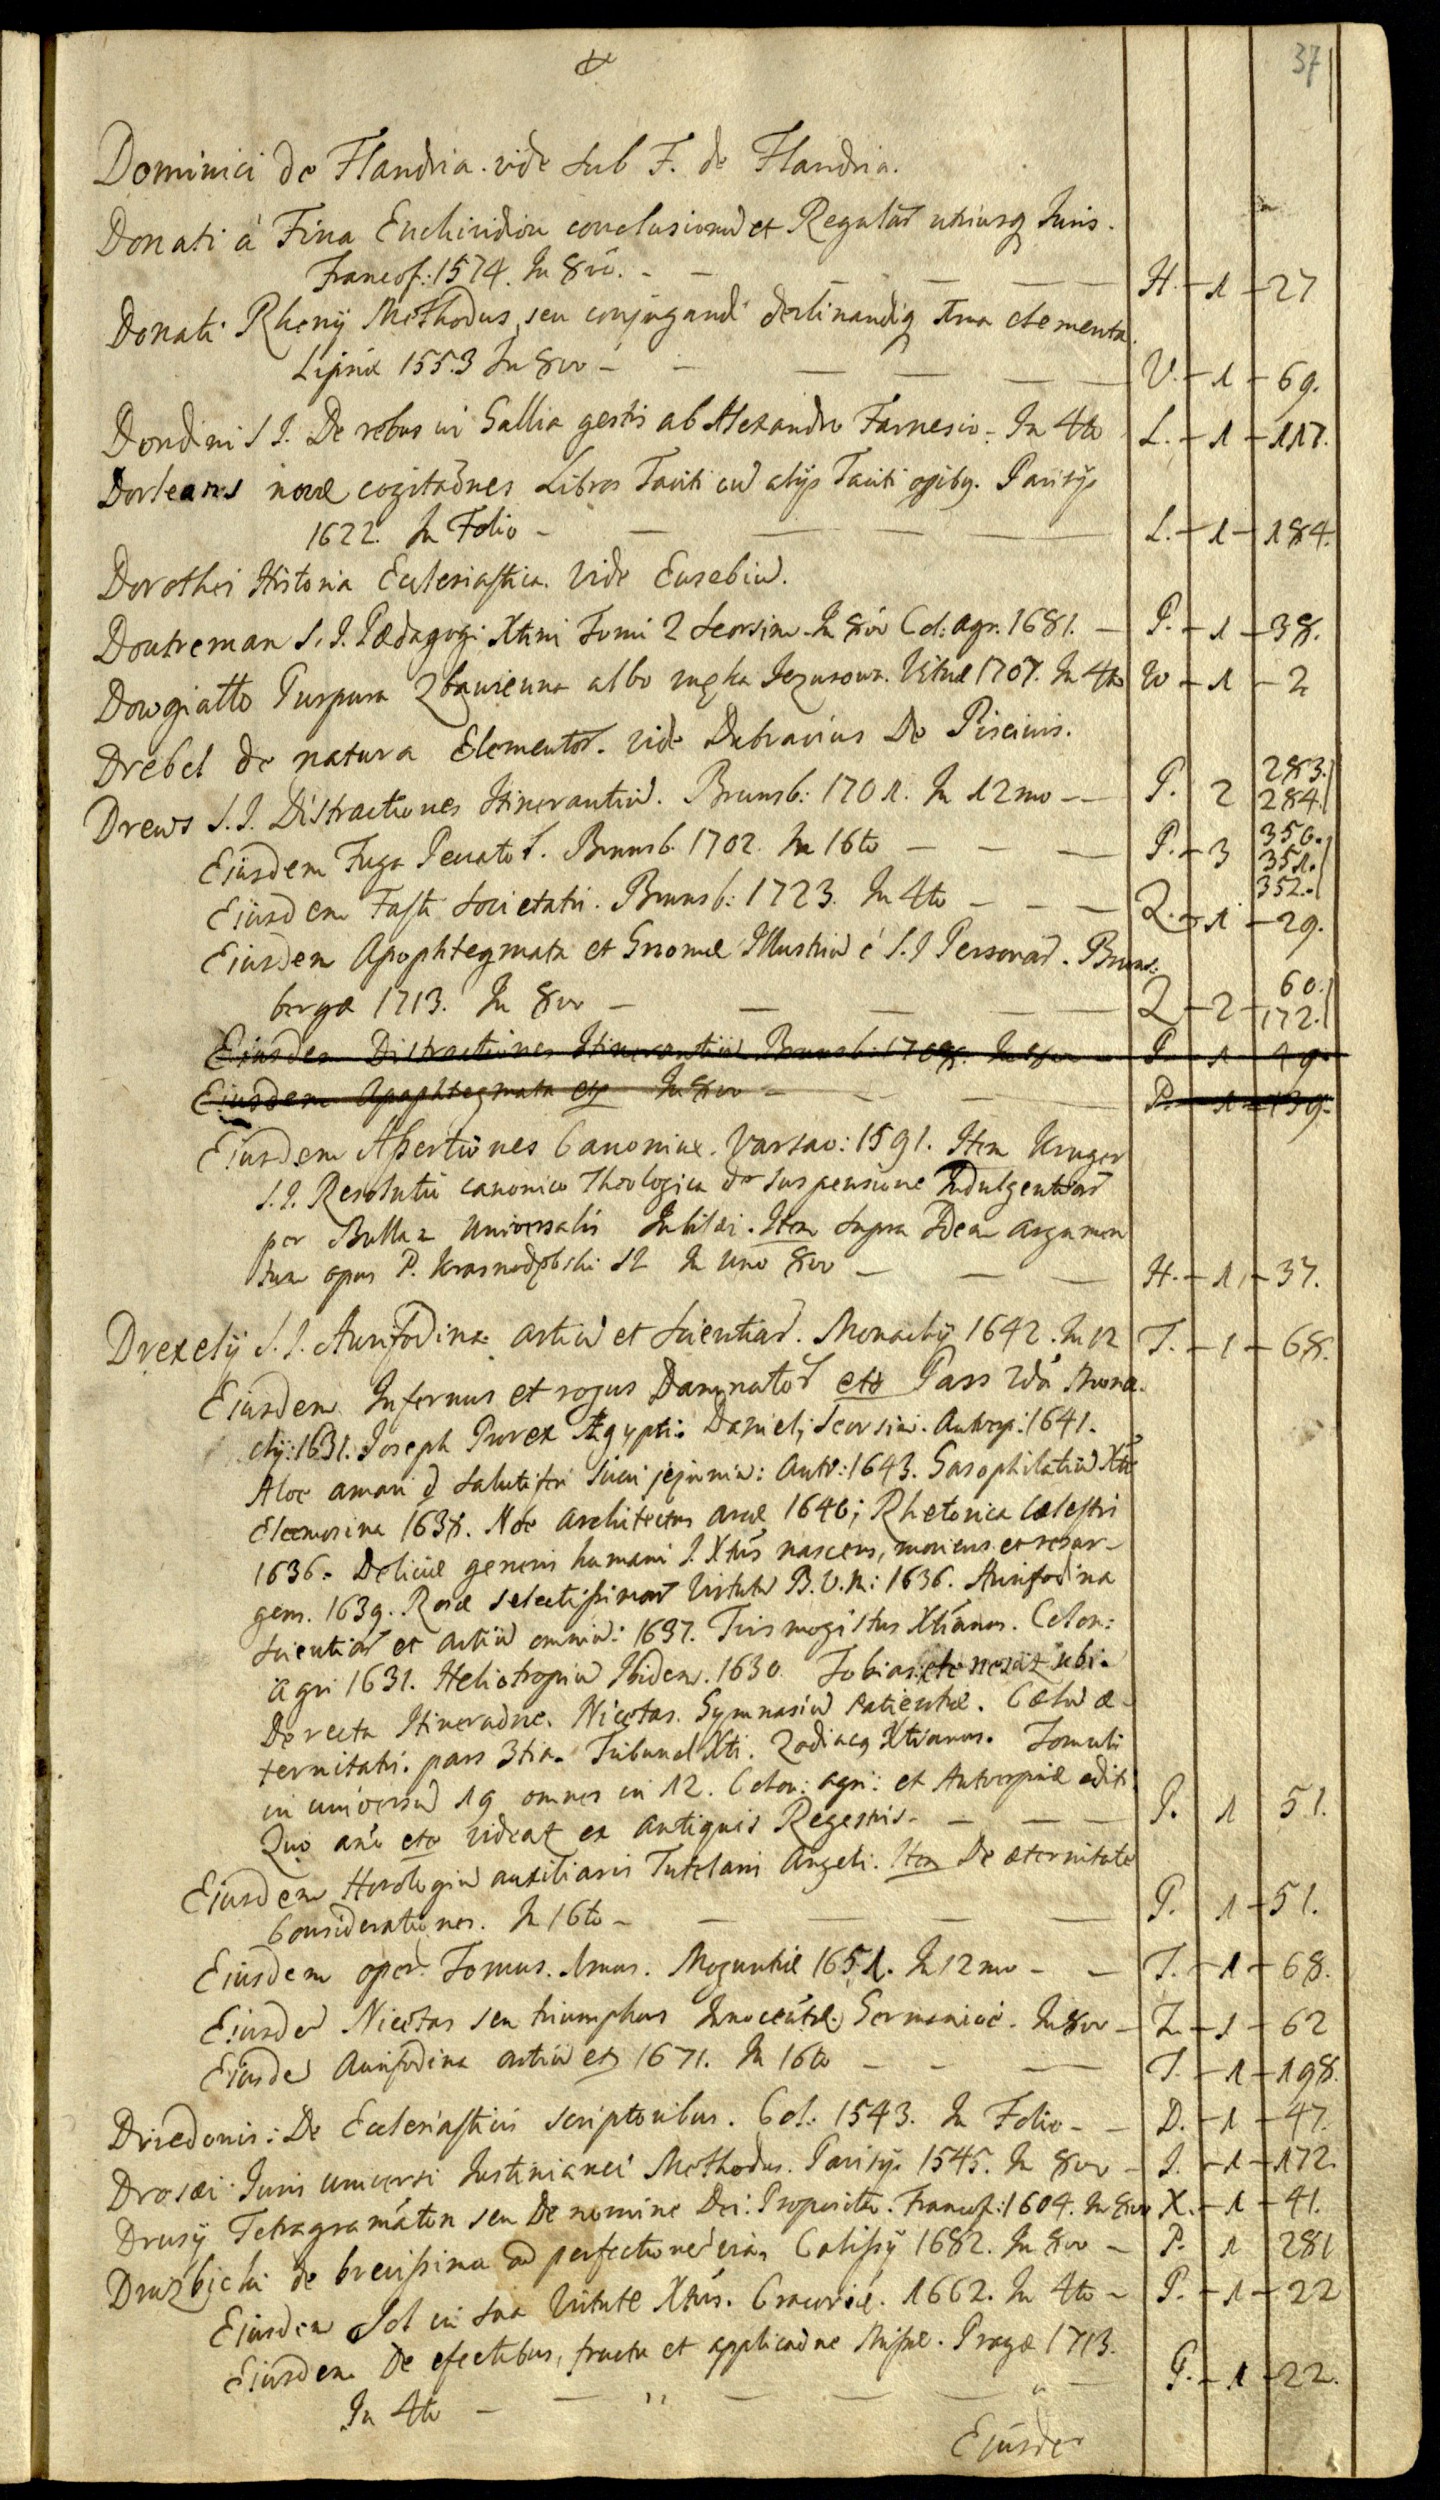 37
Dominici de Flandria. vide sub F. de Flandria.
Donati à Fina Enchiridion conclusionu et Regular utriusq Juris.
Francof: 1574. In 8vo. - - - - - H. - 1 - 27
Donati Rhenij Methodus seu conjugandi declinandiq elementa.
Lipsiæ 1553 In 8vo - - - - - V. - 1 - 69.
Dondini S I. De rebus in Gallia gestis ab Alexandro Farnesio. In 4to L. - 1 - 117.
Dorleans novæ cogitaones Libros Taciti cu alijs Taciti opibq. Parisijs
1622. In Folio - - - - - L. - 1 - 184.
Dorothei Historia Ecclesiastica. Vide Eusebiu.
Doutreman S. I. Pædagogi Xtiani Tomi 2 seorsim. In 8vo Col: agr. 1681. - P. - 1 - 38.
Dowgiatto Purpura Zbawienna albo męka Jezusowa. Vilnæ 1707. In 4to W - 1 - 2
Drebel de natura Elementor. vide Dubravius De Piscinis.
Drews S. I. Distractiones Itinerantiu. Brunsb: 1701. In 12mo - - P. 2 283. 284.
Ejusdem Fuga Peccator. Brunsb. 1702. In 16to - - - P. - 3 350. 351. 352.
Ejusdem Fasti Societatis. Brunsb: 1723. In 4to - - - Z. - 1 - 29.
Ejusdem Apophtegmata et Gnomæ Illustriu é S. I Personar. Bruns:
bergæ 1713. In 8vo - - - - Z - 2 - 60. 172.
Ejusdem Distractiones Itinerantiu Brunsb: In 8vo - P. - 1 - 49.
Ejusdem Apophtegmata etc In 8vo - - - P. - 1 - 139.
Ejusdem Assertiones Canonicæ. Varsav: 1591. Item Kruger
S. I. Resolutio canonico Theologica de suspensione Indulgentiar
per Bullam Universalis Jubilæi. Item supra Idem argumen
tum opus P. SI In uno 8vo - - - H. - 1. - 37.
Drexelij S. I. Aurifodina artiu et scientiar. Monachij 1642. In 12 T. - 1 - 68.
Ejusdem Infernus et rogus Damnator etc Pars 2da Mona.
chij: 1631. Joseph Prorex Ægypti: Daniel; seorsim. Antverp: 1641.
Aloe amari sed salutiferi succi jejuniu: Antv: 1643. Gasophilatiu Xti
Eleemosina 1637. Noe Architectus arcæ 1640; Rhetorica Cælestis
1636. Deliciæ generis humani I. Xtus nascens, moriens et resur-
gens. 1639. Rosæ selectissimar Virtutu B. V. M: 1636. Aurifodina
scientiar et artiu omniu: 1637. Trismegistus Xtianus. Colon:
Agri 1631. Heliotropiu Ibidem. 1630. Tobias
De recta Itineraone. Nicetas. Gymnasiu Patientiæ. Cælu æ-
ternitatis. pars 3tia. Tribunal Xti. Zodiacq Xtianus. Tomuli
in universu 19 omnes in 12. Colon: agri: et Antverpiæ editi
Quo ano etc videat ex antiquis Regestris. - - - P. 1 51.
Ejusdem Horologiu auxiliaris Tutelaris Angeli. Item De æternitate
Considerationes. In 16to - - - - - P. 1 - 51.
Ejusdem oper. Tomus. 1mus. Moguntiæ 1651. In 12mo - - T. - 1 - 68.
Ejusde Nicetas seu triumphus Innocentiæ Germanicè. In 8vo - Z. - 1 - 62
Ejusde Aurifodina artiu etc 1671. In 16to - - - T. - 1 - 198.
Driedonis: De Ecclesiasticis scriptoribus. Col: 1543. In Folio - - D. - 1 - 47.
Drosæi Juris universi Justinianei Methodus. Parisijs 1545. In 8vo - I. - 1 - 172.
Drusij Tetragramaton seu De nomine Dei Proprio. Francof: 1604. In 8vo X. - 1 - 41.
Druzbicki de brevissima ad perfectione via. Calissij 1682. In 8vo - P. 1 281
Ejusdem Sol in sua Virtute Xtus. Cracoviæ. 1662. In 4to - P. - 1 - 22
Ejusdem De efectibus, fructu et applicaone Missæ. Pragæ 1713.
In 4to - - - - - P. - 1 - 22.
Ejusde